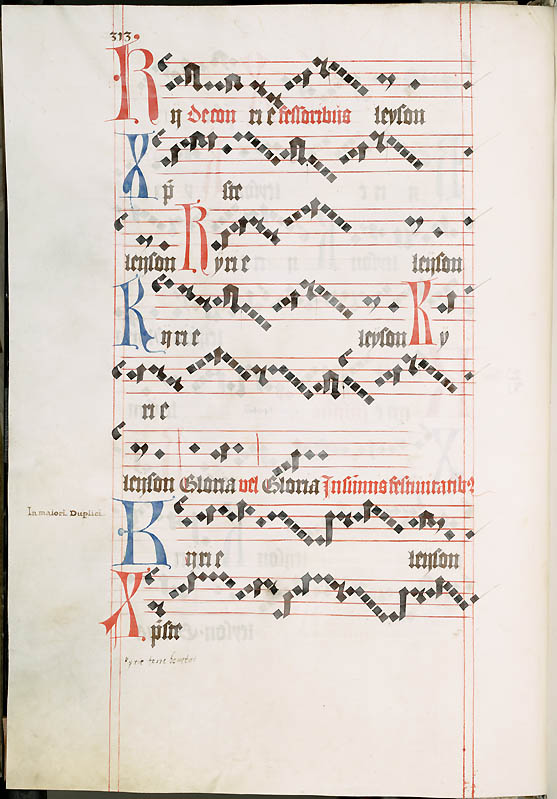 313.
Ky De con ri e fessoribus leyson
Xp̄i ste
leyson Kyri e leyson
Kyri e leyson Ky
ri e
leyson Gloria vel Gloria In sūmis festiuitatib⁹
In maiori Duplici.
Kyri e leyson
Xp̄ste